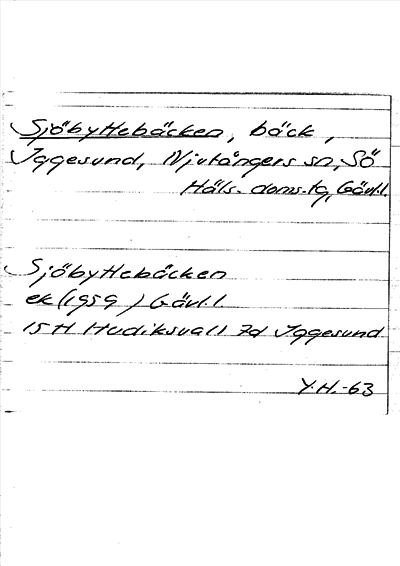 Sjöbyttebäcken, bäck,
Iggesund, Njutångers sn, Sö
Häls. doms.lg, Gävl.l.
Sjöbyttebäcken
ek (1959) Gävl.l
15 H Hudiksvall 7d Iggesund
Y.H.-63